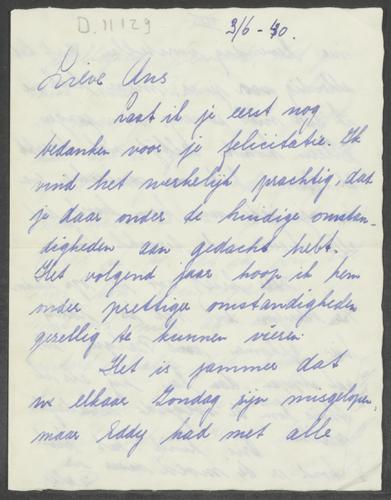 D.11129
3/6-40.
Lieve Ans
Laat ik je eerst nog
bedanken voor je felicitatie. Ik
vind het werkelijk prachtig, dat
je daar onder de huidige omstan-
digheden aan gedacht hebt.
Het volgend jaar hoop ik hem
onder prettige omstandigheden
gezellig te kunnen vieren.
Het is jammer dat
we elkaar Zondag zijn misgelopen,
maar Eddy had met alle